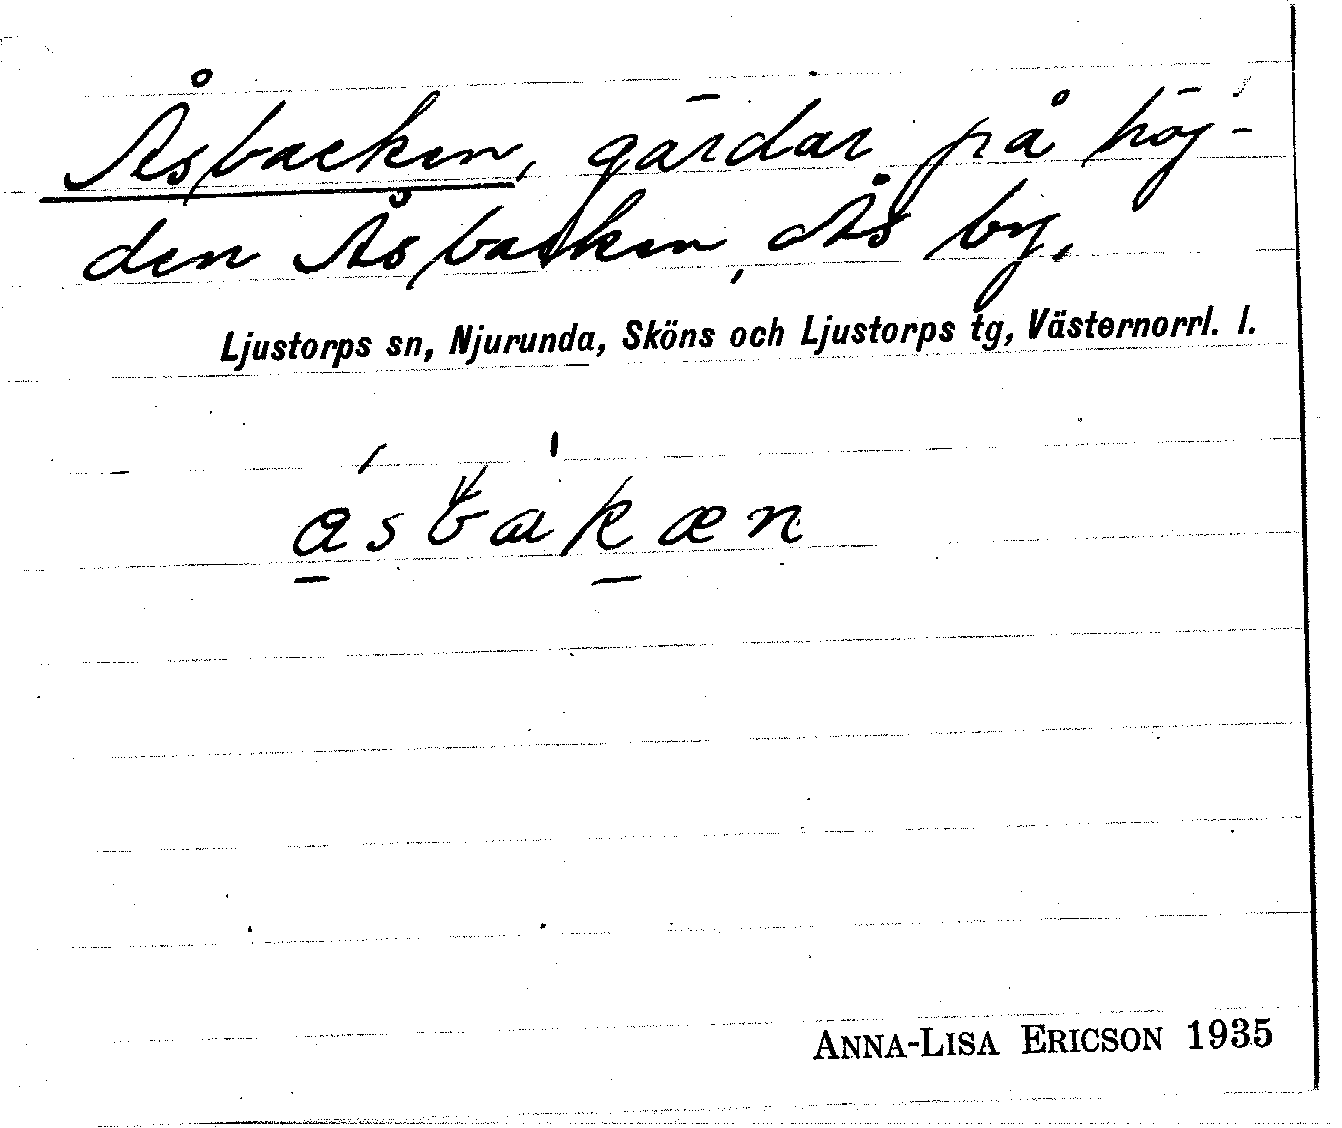 Åsbacken, gårdar på höj-
den Åsbacken, Ås by,
Ljustorps sn, Njurunda, Sköns och Ljustorps tg, Västernorrl. l.
ANNA-LISA ERICSON 1935